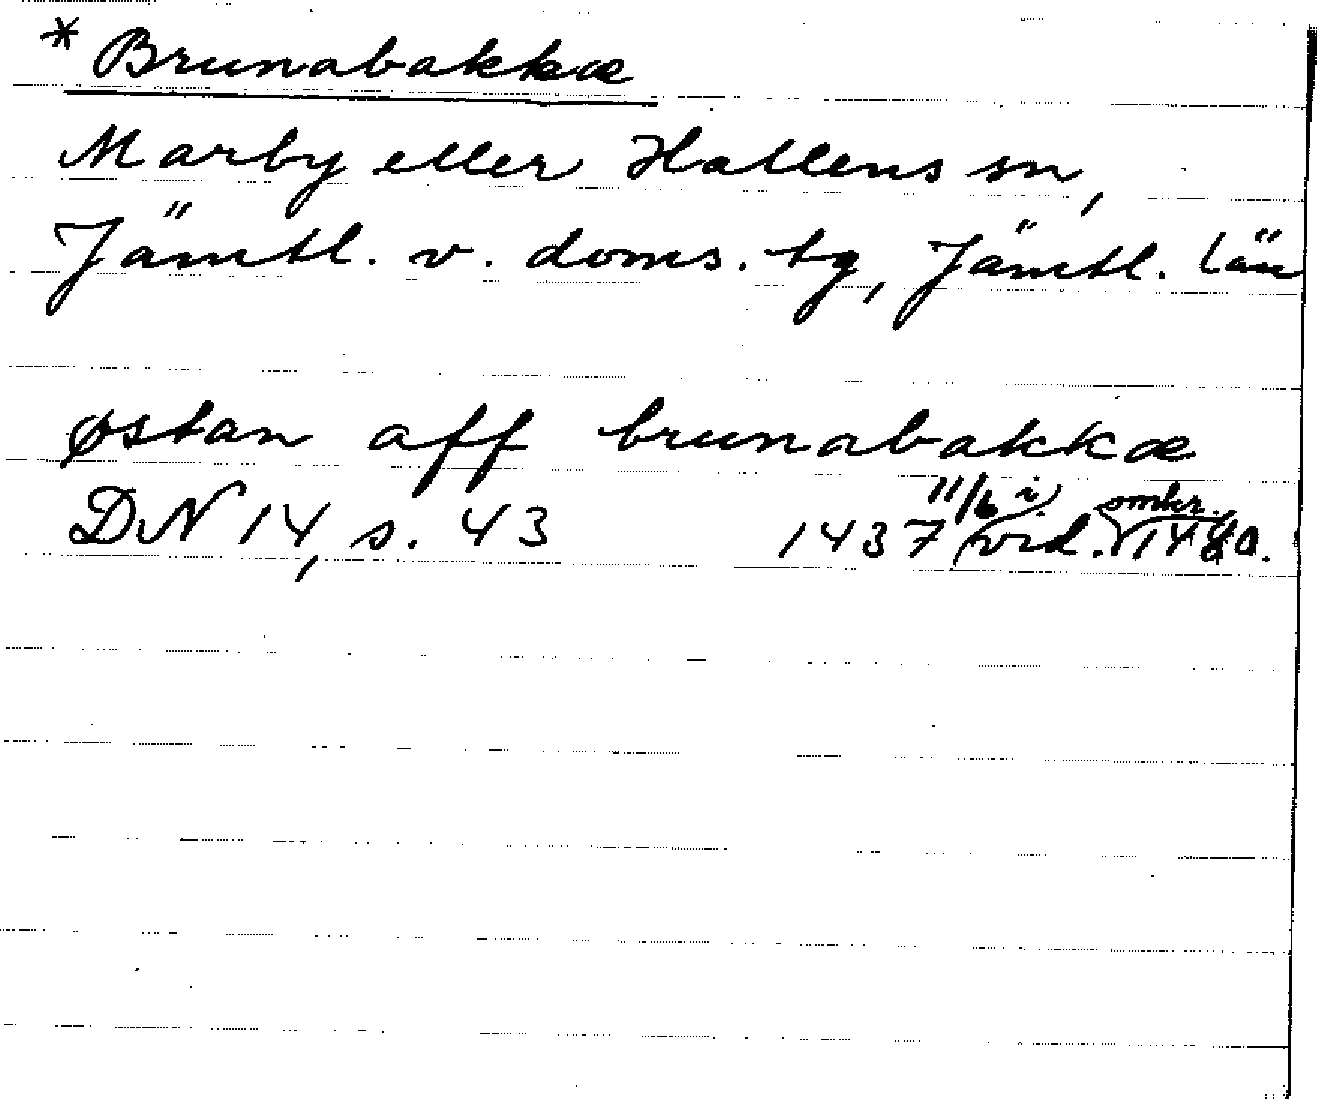 * Brunabakkæ
Marby eller Hallens sn,
Jämtl. v. doms. tg, Jämtl. län
østan aff brunabakkæ
DN 14, s. 43 1437 11/6 i vid. omkr.